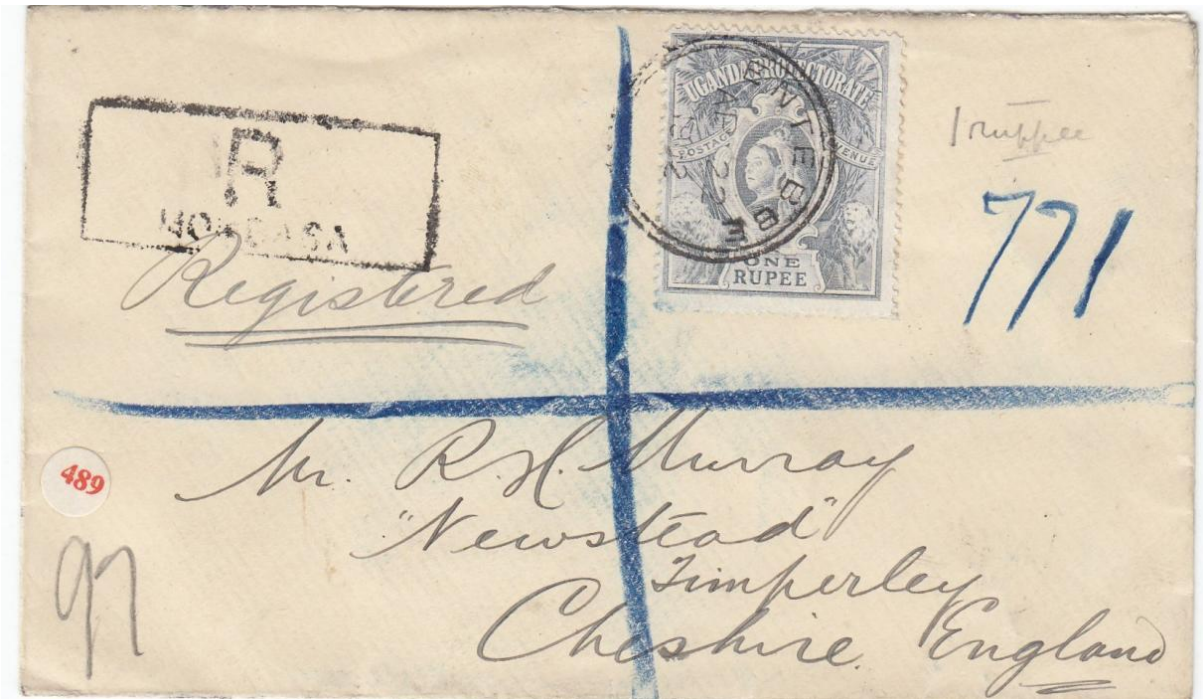 R
MOMBASA
Registered
UGANDA PROTECTORATE
POSTAGE
REVENUE
ONE
RUPEE
ENTEBBE
AP 22
1 ruppee
771
489
97
Mr. R. H. Murray
"Newstead"
Timperley
Cheshire. England